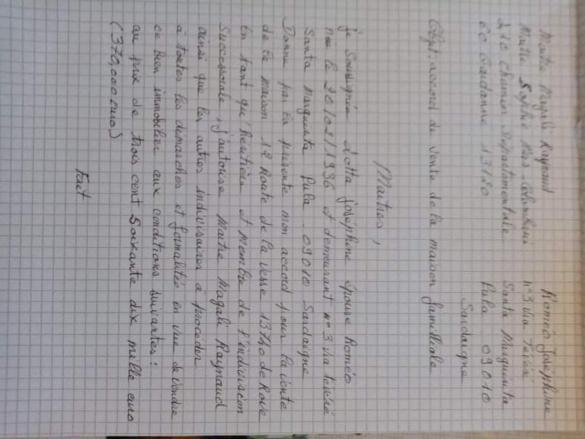 Maitre Magali Raynaud
Maitre Sophie
Chemin Départementale
Gardanne 13120
Romeo Josephine
n°3 Via
Santa Marguerita
Pula 09010
Sardaigne
Objet: accord de vente de la maison familiale
Maitres,
Je Soussignée Josephine épouse Roméo
née le 20/02/1936 et demeurant n°3 Via
Santa Marguerita Pula 09010 Sardaigne
Donne par la présente mon accord pour la vente
de la maison 12 Route de la 13740 de Rove
en tant qu'héritière et Membre de l'indivision
Successorale, j'autorise Maitre Magali Raynaud
ainsi que les autres indivisaires a procéder
à toutes les démarches et formalités en vue de vendre
ce bien immobilier aux conditions suivantes:
au prix de trois cent Soixante dix mille euro
(370,000 euro)
Fait